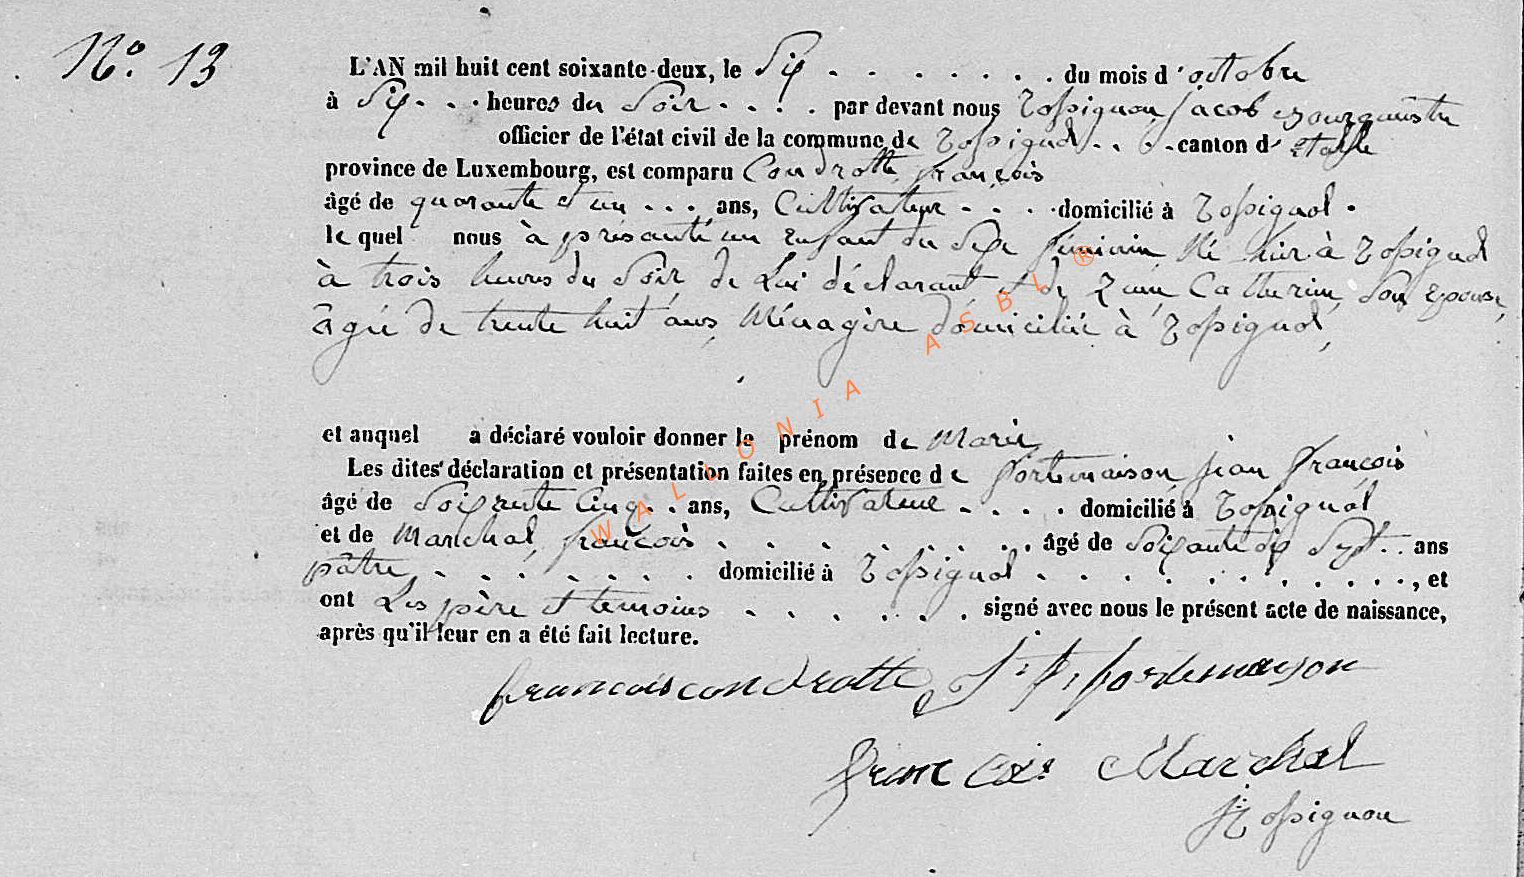 N.º 13
L'AN mil huit cent soixante-deux, le Six . . . . . . . du mois d'octobre
à Six . . . heures du Soir . . . . par devant nous Rossignon jacob Bourguéstre
officier de l'état civil de la commune de Rossignol . . . canton d'étalle
province de Luxembourg, est comparu Condrotte, françois
âgé de quarante et un . . . ans, Cultivateur . . . . domicilié à Rossignol .
le quel nous à présenté un Enfant du Sexe féminin Né hier à Rossignol
à trois heures du Soir de Lui déclarant et de Catherine, Son Epouse,
âgée de trente huit ans, Ménagère domiciliée à Rossignol,
et auquel a déclaré vouloir donner le prénom de Marie
Les dites déclaration et présentation faites en présence de fortemaison jean françois
âgé de Soixente Cinq . . ans, Cultivateur . . . . domicilié à Rossignol
et de Marchal, françois . . . . . . . . âgé de Soixante dix Sept . . ans
pâtre, . . . . . . . domicilié à Rossignol . . . . . . . . . . , et
ont Les père et temoins . . . . . . signé avec nous le présent acte de naissance,
après qu'il leur en a été fait lecture.
francois condrotte J. f. fortemaison
francois Marchal
J: Rossignon
WALLONIA ASBL ®